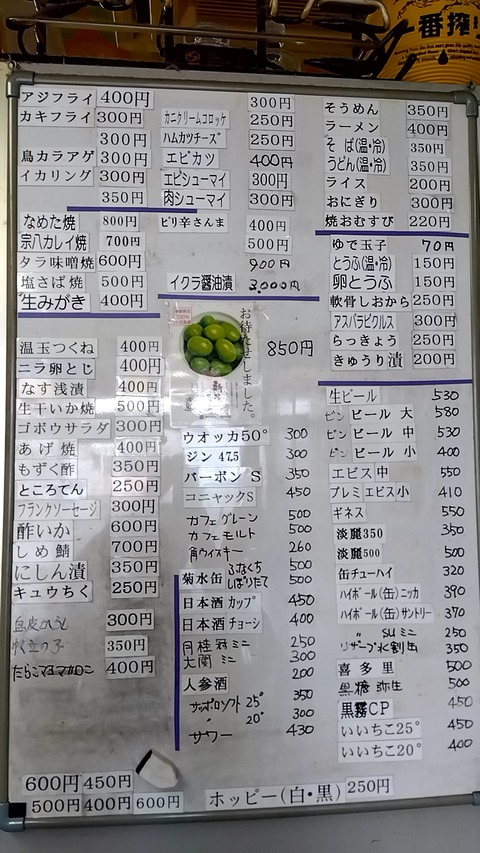 一番搾り
アジフライ 400円
カキフライ 300円
300円
鳥カラアゲ 300円
イカリング 300円
350円
なめた焼 800円
宗八カレイ焼 700円
タラ味噌焼 600円
塩さば焼 500円
生みがき 400円
温玉つくね 400円
ニラ卵とじ 400円
なす浅漬 400円
生干いか焼 500円
ゴボウサラダ 300円
あげ焼 400円
もずく酢 350円
ところてん 250円
フランクソーセージ 300円
酢いか 600円
しめ鯖 700円
にしん漬 350円
キュウちく 250円
300円
350円
たらこマヨマカロニ 400円
600円 450円
500円 400円 600円
300円
カニクリームコロッケ 250円
ハムカツチーズ 250円
エビカツ 400円
エビシューマイ 300円
肉シューマイ 300円
ピリ辛さんま 400円
500円
900円
イクラ醤油漬 3,000円
お待たせしました。
850円
ウオッカ50° 300
ジン 47.5 300
バーボン S 350
コニャックS 450
カフェグレーン 500
カフェモルト 500
角ウイスキー 260
菊水缶 ふなぐち 500
しぼりたて 500
日本酒 カップ 450
日本酒 チョーシ 400
月桂冠 ミニ 250
大関 ミニ 300
人参酒 200
サッポロソフト 25° 350
〃 20° 300
サワー 430
ホッピー(白・黒) 250円
そうめん 350円
ラーメン 400円
そば(温・冷) 350円
うどん(温・冷) 350円
ライス 200円
おにぎり 300円
焼おむすび 220円
ゆで玉子 70円
とうふ(温・冷) 150円
卵とうふ 150円
軟骨しおから 250円
アスパラピクルス 300円
らっきょう 250円
きゅうり漬 200円
生ビール 530
ビン ビール 大 580
ビン ビール 中 530
ビン ビール 小 400
エビス中 550
プレミエビス小 410
ギネス 550
淡麗350 350
淡麗500 500
缶チューハイ 320
ハイボール(缶)ニッカ 390
ハイボール(缶)サントリー 370
〃 SUミニ 250
リザーブ水割缶 350
喜多里 500
黒糖 弥生 500
黒霧CP 450
いいちこ25° 450
いいちこ20° 400